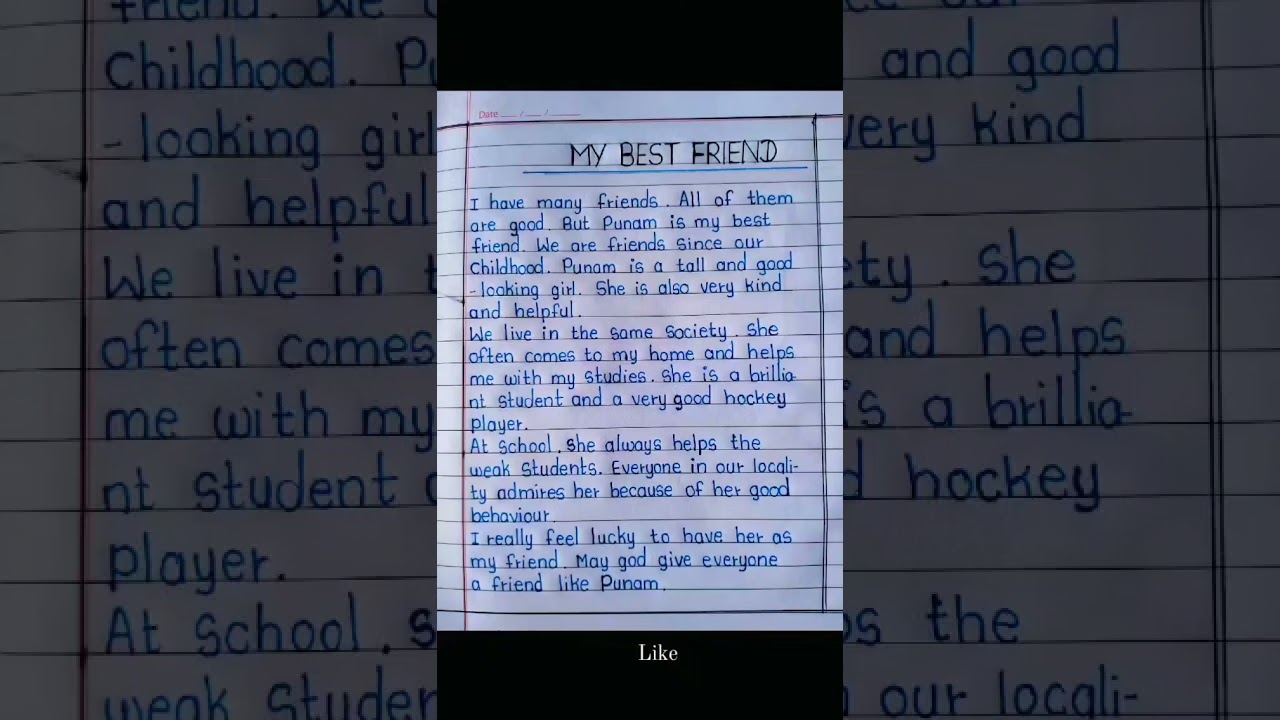 Date
MY BEST FRIEND
I have many friends. All of them
are good. But Punam is my best
friend. We are friends since our
Childhood. Punam is a tall and good
-looking girl. She is also very kind
and helpful.
We live in the same society. She
often comes to my home and helps
me with my studies. She is a brillia-
nt student and a very good hockey
player.
At school, she always helps the
weak students. Everyone in our locali-
ty admires her because of her good
behaviour.
I really feel lucky to have her as
my friend. May god give everyone
a friend like Punam.
Like